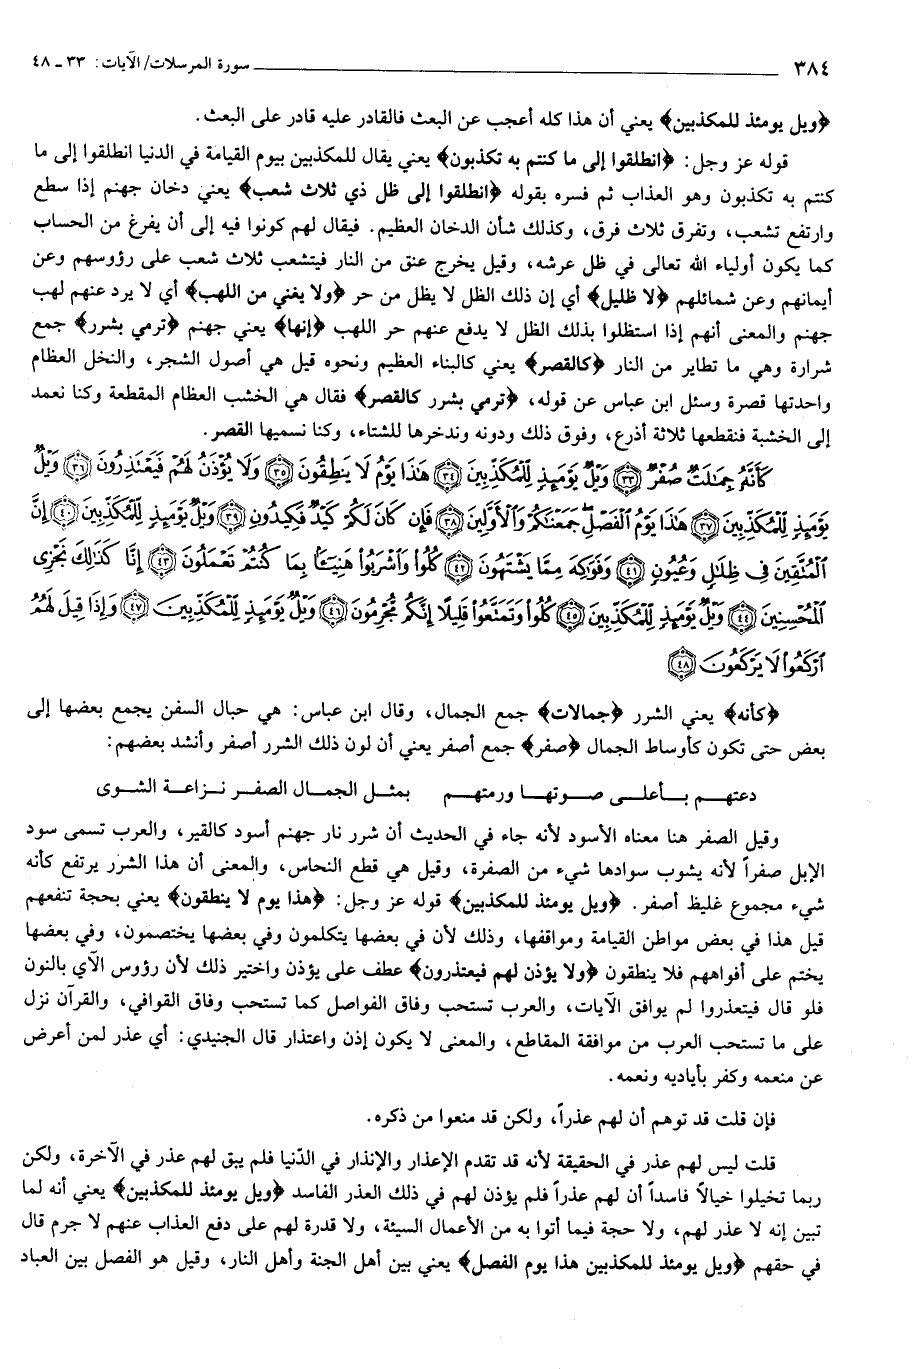 ٣٨٤ ــــــــــــــ سورة المرسلات/ الآيات: ٣٣ ـ ٤٨
﴿ويل يومئذ للمكذبين﴾ يعني أن هذا كله أعجب عن البعث فالقادر عليه قادر على البعث.
قوله عز وجل: ﴿انطلقوا إلى ما كنتم به تكذبون﴾ يعني يقال للمكذبين بيوم القيامة في الدنيا انطلقوا إلى ما
كنتم به تكذبون وهو العذاب ثم فسره بقوله ﴿انطلقوا إلى ظل ذي ثلاث شعب﴾ يعني دخان جهنم إذا سطع
وارتفع تشعب، وتفرق ثلاث فرق، وكذلك شأن الدخان العظيم. فيقال لهم كونوا فيه إلى أن يفرغ من الحساب
كما يكون أولياء الله تعالى في ظل عرشه، وقيل يخرج عنق من النار فيتشعب ثلاث شعب على رؤوسهم وعن
أيمانهم وعن شمائلهم ﴿لا ظليل﴾ أي إن ذلك الظل لا يظل من حر ﴿ولا يغني من اللهب﴾ أي لا يرد عنهم لهب
جهنم والمعنى أنهم إذا استظلوا بذلك الظل لا يدفع عنهم حر اللهب ﴿إنها﴾ يعني جهنم ﴿ترمي بشرر﴾ جمع
شرارة وهي ما تطاير من النار ﴿كالقصر﴾ يعني كالبناء العظيم ونحوه قيل هي أصول الشجر، والنخل العظام
واحدتها قصرة وسئل ابن عباس عن قوله، ﴿ترمي بشرر كالقصر﴾ فقال هي الخشب العظام المقطعة وكنا نعمد
إلى الخشبة فنقطعها ثلاثة أذرع، وفوق ذلك ودونه وندخرها للشتاء، وكنا نسميها القصر.
كَأَنَّهُۥ جِمَٰلَتٌ صُفْرٌ ﴿٣٣﴾ وَيْلٌ يَوْمَئِذٍ لِّلْمُكَذِّبِينَ ﴿٣٤﴾ هَٰذَا يَوْمُ لَا يَنطِقُونَ ﴿٣٥﴾ وَلَا يُؤْذَنُ لَهُمْ فَيَعْتَذِرُونَ ﴿٣٦﴾ وَيْلٌ
يَوْمَئِذٍ لِّلْمُكَذِّبِينَ ﴿٣٧﴾ هَٰذَا يَوْمُ ٱلْفَصْلِ جَمَعْنَٰكُمْ وَٱلْأَوَّلِينَ ﴿٣٨﴾ فَإِن كَانَ لَكُمْ كَيْدٌ فَكِيدُونِ ﴿٣٩﴾ وَيْلٌ يَوْمَئِذٍ لِّلْمُكَذِّبِينَ ﴿٤٠﴾ إِنَّ
ٱلْمُتَّقِينَ فِي ظِلَٰلٍ وَعُيُونٍ ﴿٤١﴾ وَفَوَٰكِهَ مِمَّا يَشْتَهُونَ ﴿٤٢﴾ كُلُوا۟ وَٱشْرَبُوا۟ هَنِيٓـًٔۢا بِمَا كُنتُمْ تَعْمَلُونَ ﴿٤٣﴾ إِنَّا كَذَٰلِكَ نَجْزِي
ٱلْمُحْسِنِينَ ﴿٤٤﴾ وَيْلٌ يَوْمَئِذٍ لِّلْمُكَذِّبِينَ ﴿٤٥﴾ كُلُوا۟ وَتَمَتَّعُوا۟ قَلِيلًا إِنَّكُم مُّجْرِمُونَ ﴿٤٦﴾ وَيْلٌ يَوْمَئِذٍ لِّلْمُكَذِّبِينَ ﴿٤٧﴾ وَإِذَا قِيلَ لَهُمُ
ٱرْكَعُوا۟ لَا يَرْكَعُونَ ﴿٤٨﴾
﴿كأنه﴾ يعني الشرر ﴿جمالات﴾ جمع الجمال، وقال ابن عباس: هي حبال السفن يجمع بعضها إلى
بعض حتى تكون كأوساط الجمال ﴿صفر﴾ جمع أصفر يعني أن لون ذلك الشرر أصفر وأنشد بعضهم:
دعتهم بأعلى صوتها ورمتهم بمثل الجمال الصفر نزاعة الشوى
وقيل الصفر هنا معناه الأسود لأنه جاء في الحديث أن شرر نار جهنم أسود كالقير، والعرب تسمى سود
الإبل صفراً لأنه يشوب سوادها شيء من الصفرة، وقيل هي قطع النحاس، والمعنى أن هذا الشرر يرتفع كأنه
شيء مجموع غليظ أصفر. ﴿ويل يومئذ للمكذبين﴾ قوله عز وجل: ﴿هذا يوم لا ينطقون﴾ يعني بحجة تنفعهم
قيل هذا في بعض مواطن القيامة ومواقفها، وذلك لأن في بعضها يتكلمون وفي بعضها يختصمون، وفي بعضها
يختم على أفواههم فلا ينطقون ﴿ولا يؤذن لهم فيعتذرون﴾ عطف على يؤذن واختير ذلك لأن رؤوس الآي بالنون
فلو قال فيتعذروا لم يوافق الآيات، والعرب تستحب وفاق الفواصل كما تستحب وفاق القوافي، والقرآن نزل
على ما تستحب العرب من موافقة المقاطع، والمعنى لا يكون إذن واعتذار قال الجنيدي: أي عذر لمن أعرض
عن منعمه وكفر بأياديه ونعمه.
فإن قلت قد توهم أن لهم عذراً، ولكن قد منعوا من ذكره.
قلت ليس لهم عذر في الحقيقة لأنه قد تقدم الإعذار والإنذار في الدّنيا فلم يبق لهم عذر في الآخرة، ولكن
ربما تخيلوا خيالاً فاسداً أن لهم عذراً فلم يؤذن لهم في ذلك العذر الفاسد ﴿ويل يومئذ للمكذبين﴾ يعني أنه لما
تبين إنه لا عذر لهم، ولا حجة فيما أتوا به من الأعمال السيئة، ولا قدرة لهم على دفع العذاب عنهم لا جرم قال
في حقهم ﴿ويل يومئذ للمكذبين هذا يوم الفصل﴾ يعني بين أهل الجنة وأهل النار، وقيل هو الفصل بين العباد